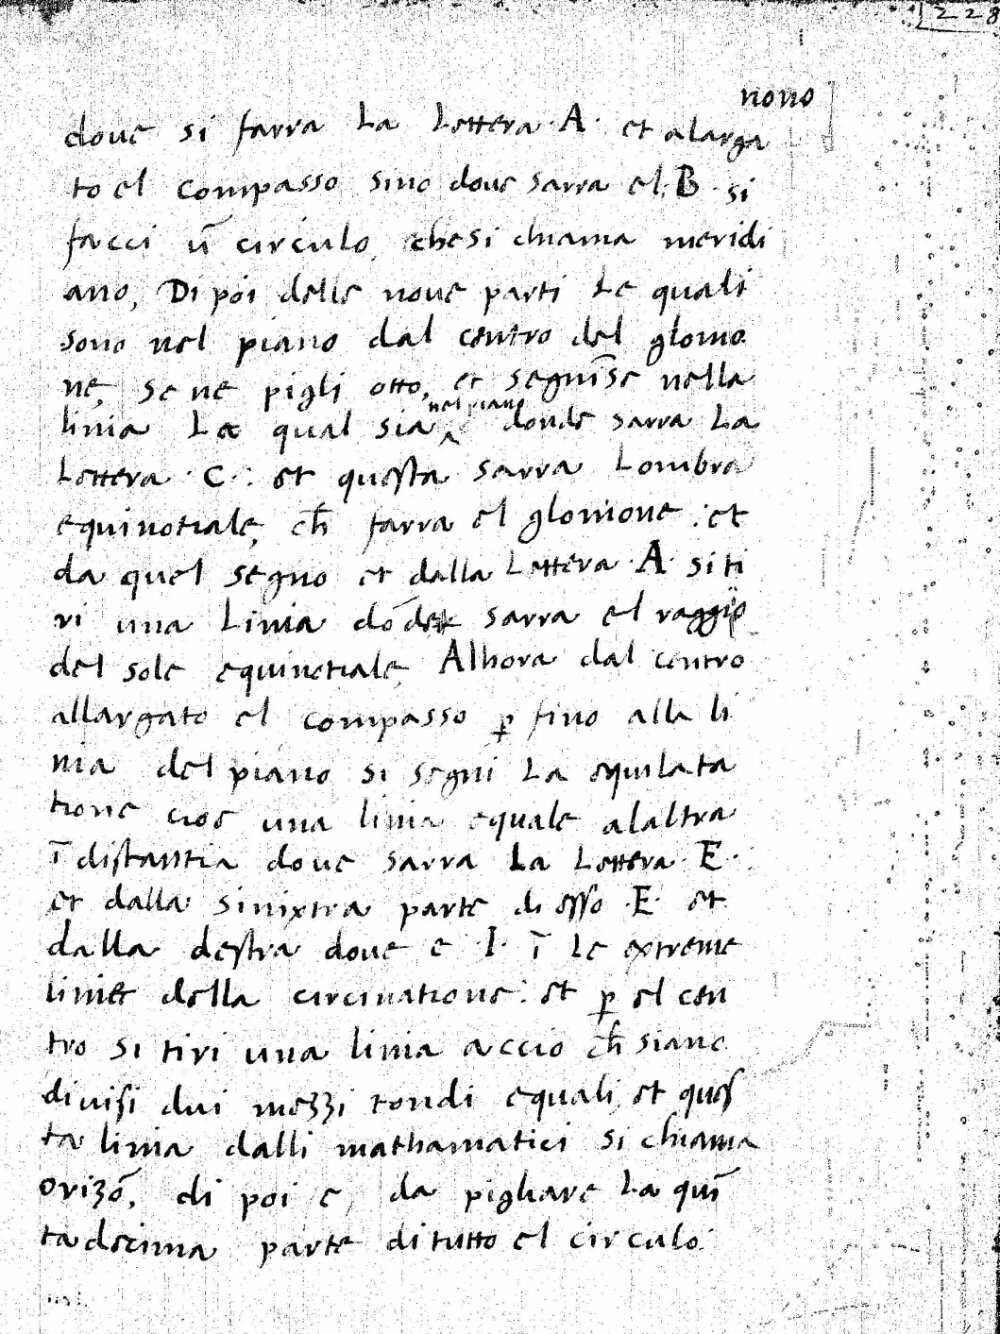 228
nono
doue si farra La Lettera ·A· et alarga
to el compasso sino doue sarra el ·B· si
facci ũ circulo, che si chiama meridi
ano, Di poi delle noue parti Le quali
sono nel piano dal centro del glomo
ne, se ne pigli otto, et segnĩse nella
nel piano
linia La qual sia ^ donde sarra La
Lettera ·C·: et questa sarra Lombra
equinotiale, ch̃ farra el glomone: et
da quel segno et dalla Lettera ·A· si ti
ri una Linia dõde sarra el raggio
del sole equinotiale, Alhora dal centro
allargato el compasso ꝑ fino alla li
nia del piano si segni La equilata
tione cioe una linia equale alaltra
ĩ distantia doue sarra La Lettera ·E·
et dalla sinixtra parte di esso ·E· et
dalla destra doue e ·I· ĩ le extreme
linie della circinatione: et ꝑ el cen
tro si tiri una linia accio ch̃ siano
diuisi dui mezzi tondi equali, et ques
ta linia dalli mathamatici si chiama
orizõ, di poi e, da pigliare La quĩ
tadecima parte di tutto el circulo: